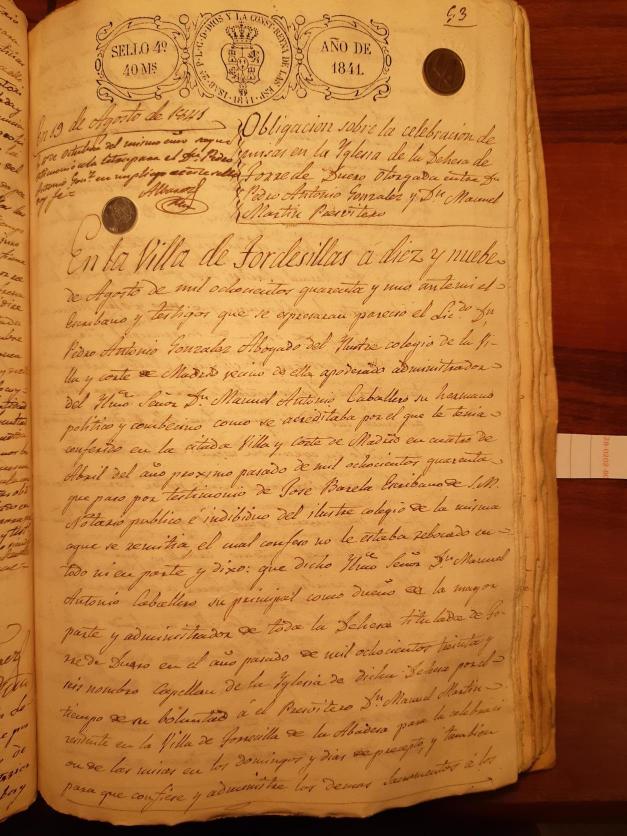 53
SELLO 4º
40 Ms
ISAB. 2ª P. L. G. D. DIOS Y LA CONST. REYNA DE LAS ESP. 1841
AÑO DE
1841.
En 19 de Agosto de 1841
del mismo año
para el Dn Pedro
Antonio Gonz en un pliego
doy fe
Obligacion sobre la celebracion de
misas en la Iglesia de la Dehesa de
Torre de Duero otorgada entre Dn
Pedro Antonio Gonzalez y Dn Manuel
Martin Presvitero
En la Villa de Tordesillas a diez y nuebe
de Agosto de mil ochocientos quarenta y uno ante mi el
Escribano y testigos que se espresaran parecio el Lic.do Dn
Pedro Antonio Gonzalez Abogado del Ilustre colegio de la Vi-
lla y corte de Madrid vecino de ella apoderado administrador
del Ylmo Señor Dn Manuel Antonio Caballero su hermano
politico y combecino como se acreditaba por el que le tenia
conferido en la citada Villa y Corte de Madrid en cuatro de
Abril del año proximo pasado de mil ochocientos quarenta
que paso por testimonio de Jose Barela Escribano de S.M.
Notario publico é indibiduo del ilustre colegio de la misma
aque se remitia, el cual confeso no le estaba rebocado en
todo ni en parte y dixo: que dicho Ylmo Señor Dn Manuel
Antonio Caballero su principal como dueño de la mayor
parte y administrador de toda la Dehesa titulada de To-
rre de Duero en el año pasado de mil ochocientos treinta y
seis nombro Capellan de la Yglesia de dicha Dehesa por el
tiempo de su boluntad á el Presvitero Dn Manuel Martin
residente en la Villa de Torrecilla de la Abadesa para la celebraci
on de las misas en los domingos y dias de precepto, y tambien
para que confiese y administre los demas Sacramentos á los